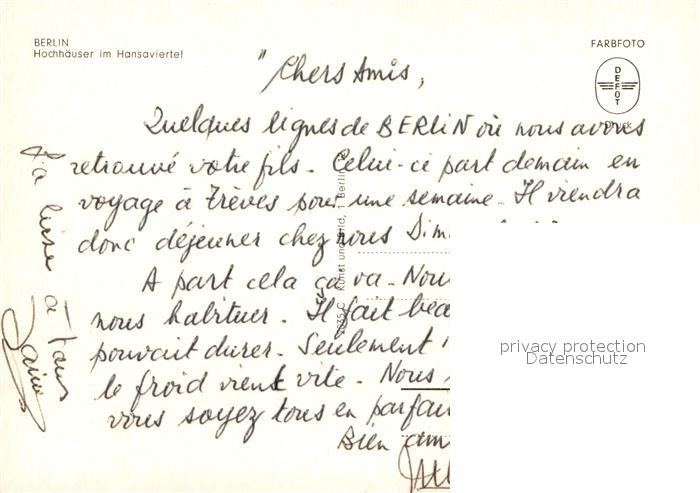 BERLIN
Hochhäuser im Hansaviertel
FARBFOTO
DEFOT
Druck
" Chers Amis,
Quelques lignes de BERLiN où nous avons
retrouvé votre fils. Celui-ci part demain en
voyage à Trèves pour une semaine. Il viendra
donc déjeuner chez nous Dim
A part cela ça va. Nou
nous habituer. Il fait bea
pouvait durer. Seulement
le froid vient vite. Nous
vous soyez tous en parfai
Bien am
Kunst und Bild, 1 Berlin
à tous
privacy protection
Datenschutz